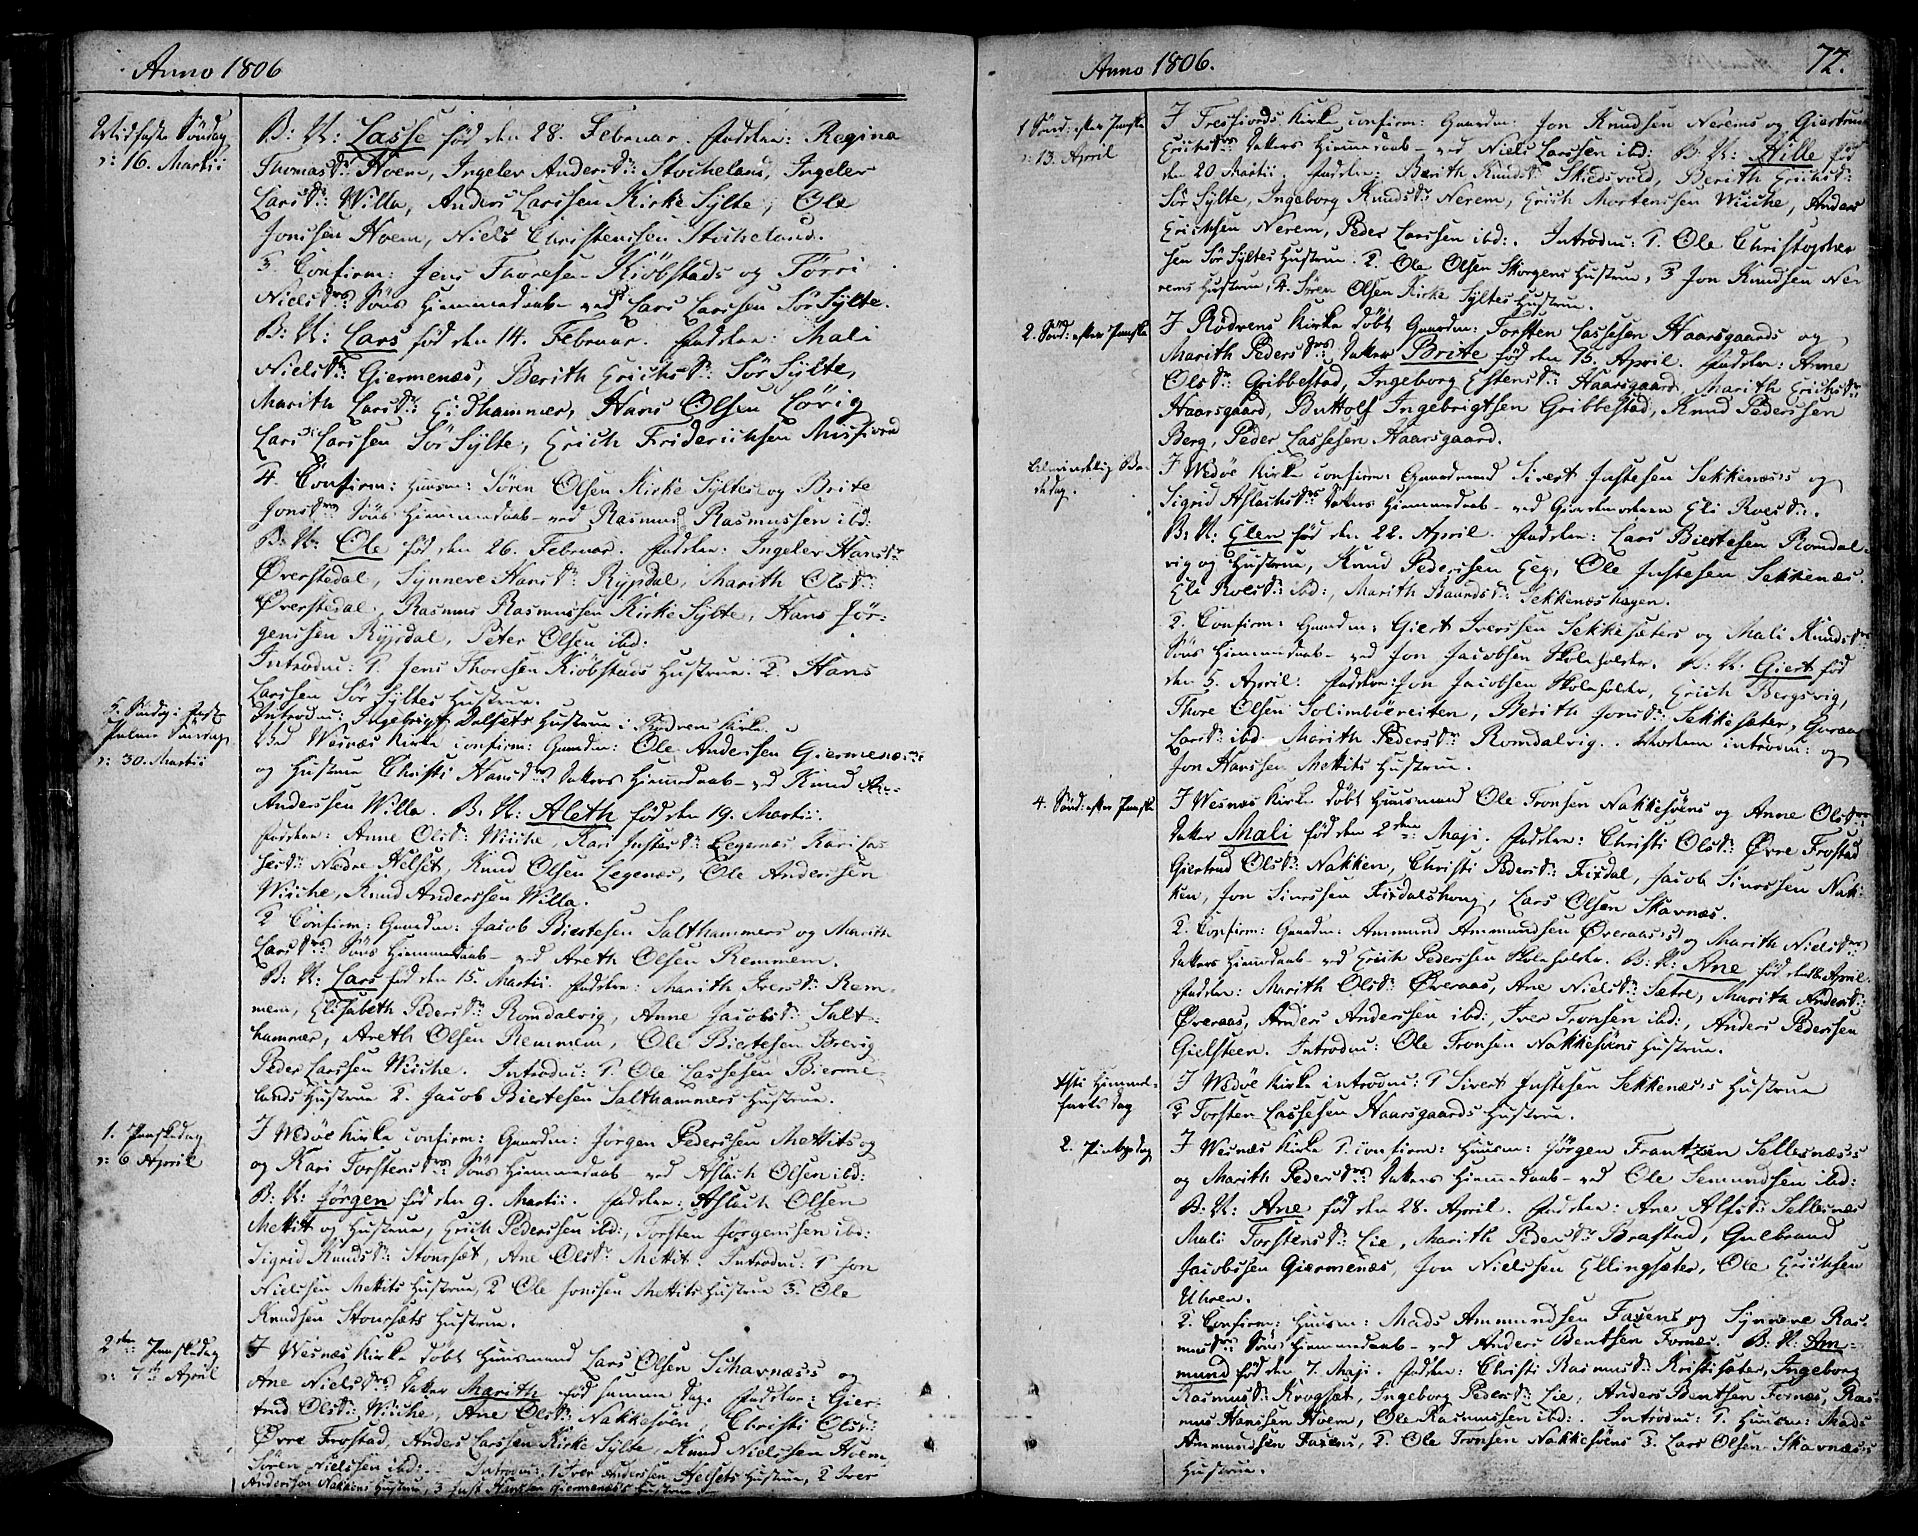 Anno 1806
Midfaste Söndag
ɔ: 16. Martii
B: N: Lasse föd den 28. Februar. Faddere: Regina
Thomasdr: Hoem, Ingeler Andersdr: Stocheland, Ingeler
Larsdr: Willa, Anders Larssen Kirke Sylte, Ole
Jonssen Hoem, Niels Christenssen Stocheland.
3. Confirm: Jens Thoresen Kiöbstads og Törri
Nielsdrs: Söns Hiemmedaab ved Lars Larssen Sör Sylte.
B: N: Lars föd den 14. Februar. Faddere: Mali
Nielsdr: Giermenæs, Berith Erichsdr: Sör Sylte,
Marith Larsdr: Gudhammer, Hans Olsen Lövig
Lars Larssen Sör Sylte, Erich Friderichsen Misfiord
4. Confirm: Huusm: Sören Olsen Kirke Syltes og Brite
Jonsdrs Söns Hiemmedaab ved Rasmus Rasmussen ibd:
B: N: Ole föd den 26. Februar. Faddere: Ingeler Hansdr
Överstedal, Synneve Hansdr Rypdal, Marith Olsdr
Överstedal, Rasmus Rasmussen Kirke Sylte, Hans Jör-
genssen Rypdal, Peter Olsen ibd:
Introdu: 1. Jens Thoresen Kiöbstads Hustrue. 2. Hans
Larssen Sör Syltes Hustrue.
5. Söndag i Faste
Introdu: Ingebrigt Dalsets Hustrue i Rödven Kirke.
Palme Söndag
ɔ: 30. Martii
Ved Wesnæs Kirke confirm: Gaardm: Ole Andersen Giermenæses
og Hustrue Christi Hansdrs Datters Hiemmedaab ved Knud
Anderssen Willa. B. N: Aleth föd den 19. Martii.
Faddere: Anne Olsdr: Wiiche, Kari Justesdr: Legernæs, Kari Las-
sesdr: Nedre Helset, Knud Olsen Legenæs, Ole Anderssen
Wiiche, Knud Anderssen Willa.
2. Confirm: Gaardm: Jacob Biertesen Salthammers og Marith
Larsdrs: Söns Hiemmedaab ved Areth Olsen Remmem.
B: N: Lars föd den 15. Martii. Faddere: Marith Iversdr: Rem-
mem, Elisabeth Pedersdr Romdalvig, Anne Jacobsdr: Salt-
hammer, Areth Olsen Remmem, Ole Biertesen Brevig
Peder Larssen Wiiche. Introdu: 1. Ole Lassesen Bierme-
lands Hustrue 2. Jacob Biertesen Salthammers Hustrue.
1. Paaskedag
ɔ: 6 April
I Wedöe Kirke confirm: Gaardm: Jörgen Pederssen Mettits og
og Kari Torstensdrs: Söns Hiemmedaab ved Aslach Olsen ibd:
B: N: Jörgen föd den 9. Martii. Faddere: Aslach Olsen
Mettit og Hustrue, Erich Pederssen ibd:, Torsten Jörgenssen ibd:
Sigrid Knudsdr: Stoursæt, Ane Olsdr: Mettit. Introdu: 1. Jon
Nielssen Mettits Hustrue, 2 Ole Jonssen Mettits Hustrue 3. Ole
Knudsen Stoursæts Hustrue.
2den Paaskedag
ɔ: 7de April
I Wesnæs Kirke döbt Huusmand Lars Olsen Schavnæses og
Ane Nielsdrs: Datter Marith föd samme dag. Faddere: Gier-
trud Olsdr: Wiiche, Ane Olsdr: Nakkesöen, Christi Olsdr:
Övre Frostad, Anders Larssen Kirke Sylte, Knud Nielssen Hoem
Sören Nielssen ibd:. Introdu: 1 Iver Anderssen Helsets Hustrue, 2 Iver
Anderssen Nakkens Hustrue, 3 Just Knudsen Giermenæses Hustrue.
Anno 1806.
72.
1 Sönd: efter Paaske
ɔ: 13. April
I Tresfiords Kirke confirm: Gaardm: Jon Knudsen Nerems og Giertrud
Erichsdrs Datters Hiemmedaab ved Niels Larssen ibd: B: N: Hille föd
den 20 Martii. Faddere: Berith Knudsdr Skiedsvold, Berith Erichsdr:
Sör Sylte, Ingeborg Knudsdr: Nerem, Erich Mortenssen Wiiche, Anders
Erichsen Nerem, Peder Larssen ibd:. Introdu: 1. Ole Christopher
sen Sör Syltes Hustrue. 2. Ole Olsen Skorgens Hustrue, 3 Jon Knudsen Ne-
rems Hustrue, 4. Sören Olsen Kirke Syltes Hustrue.
2. Sönd: efter Paaske
I Rödvens Kirke döbt Gaardm: Torsten Lassesen Haarsgaards og
Marith Pedersdrs: Datter Brite föd den 15. April. Faddere: Anne
Olsdr: Gribbestad, Ingeborg Estensdr: Haarsgaard, Marith Erichsdr
Haarsgaard, Buttolf Ingebrigtsen Gribbestad, Knud Pederssen
Berg, Peder Lassesen Haarsgaard.
Almindelig Be-
dedag.
I Wedöe Kirke confirm: Gaardmand Sivert Justesen Sekkenæses og
Sigrid Aslachsdrs: Datters Hiemmedaab ved Giordemoderen Eli Roesdr:.
B: N: Elen föd den 22. April. Faddere: Lars Biertesen Romdal-
vig og Hustrue, Knud Pederssen Eeg, Ole Justesen Sekkenæs.
Eli Roesdr: ibd:, Marith Baardsdr: Sekkenæshagen.
2. Confirm: Gaardm: Giert Iverssen Sekkesæters og Mali Knudsdrs
Söns Hiemmedaab ved Jon Jacobsen Skoleholder. B: N: Giert föd
den 5. April: Faddere: Jon Jacobsen Skoleholder, Erich Bergsvig,
Thore Olsen Solimböreiten, Berith Jonsdr: Sekkesæter, Goroas
Larsdr: ibd. Marith Pedersdr: Romdalvig. Moderen introdu: og
Jon Hanssen Mettits Hustrue.
4. Sönd: efter Paaske
I Wesnæs Kirke döbt Huusmand Ole Tronsen Nakkesöens og Anne Olsdrs
Datter Mali föd den 2den Maji. Faddere: Christi Olsdr: Övre Frostad
Giertrud Olsdr: Nakken, Christi Pedersdr: Fixdal, Jacob Siverssen Nak-
ken, Jon Siverssen Fixdalshoug, Lars Olsen Skavnæs.
2. Confirm: Gaardm: Ammund Ammundsen Överaases og Marith Nielsdrs
Datters Hiemmedaab ved Erich Pederssen Skoleholder. B: N: Ane föd den April.
Faddere: Marith Olsdr: Överaas, Ane Nielsdr: Sætre, Marith Andersdr:
Överaas, Anders Anderssen ibd:, Iver Tronsen ibd:, Anders Pederssen
Gielsteen. Introdu: Ole Tronsen Nakkesöens Hustrue.
Xsti Himmel-
farts Dag
I Wedöe Kirke introdu: 1 Sivert Justesen Sekkenæses Hustrue
2 Torsten Lassesen Haarsgaards Hustrue.
2. Pintzedag
I Wesnæs Kirke 1. confirm: Huusm: Jörgen Frantzsen Sellesnæses
og Marith Pedersdrs Datters Hiemmedaab ved Ole Semundsen ibd:
B: N: Ane föd den 28. April. Faddere: Ane Alfsdr: Sellesnæs
Mali Torstensdr: Lie, Marith Pedersdr Brafstad, Gulbrand
Jacobssen Giermenæs, Jon Nielssen Ellingsæter, Ole Erichsen
Uhren.
2. Confirm: Huusm: Mads Ammundsen Farens og Synneve Ras-
musdrs Söns Hiemmedaab ved Anders Benthsen Fornæs. B. N: Am-
mund föd den 7. Maji. Faddere: Christi Rasmusdr: Kristisæter, Ingeborg
Rasmusdr: Krogsæt, Ingeborg Pedersdr: Lie, Anders Benthsen Fornæs, Ras-
mus Hanssen Hoem, Ole Rasmussen ibd:. Introdu: 1. Huusm: Mads
Ammundsen Farens, 2. Ole Tronsen Nakkesöens 3. Lars Olsen Skavnæses
Hustrue.